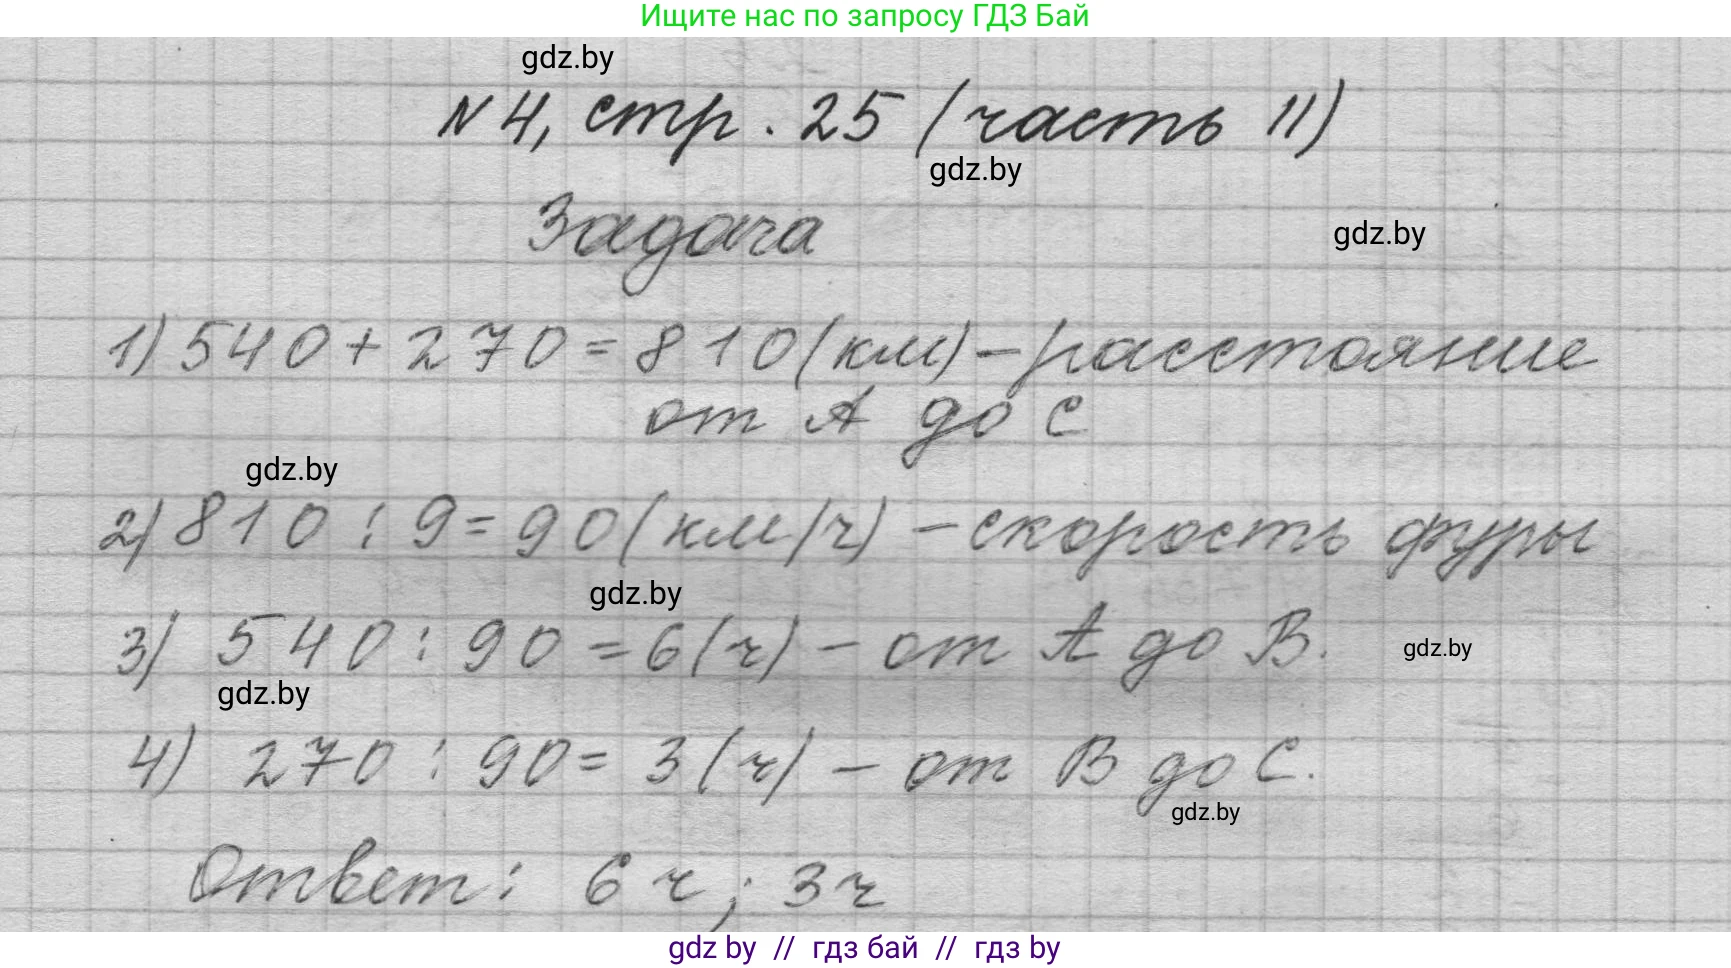 Ищите нас по запросу ГДЗ Бай
gdz.by
№4, стр. 25 (часть II)
gdz.by
Задача
gdz.by
1) 540 + 270 = 810 (км) – расстояние
от А до С
gdz.by
2) 810 : 9 = 90 (км/ч) – скорость фуры
gdz.by
3) 540 : 90 = 6 (ч) – от А до В.
gdz.by
gdz.by
4) 270 : 90 = 3 (ч) – от В до С.
gdz.by
Ответ: 6 ч; 3 ч
gdz by // гдз бай // гдз by